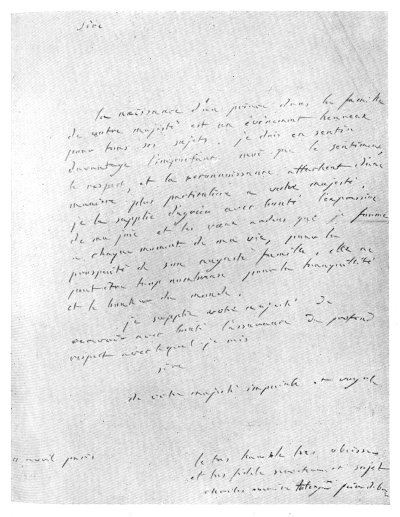 Sire
la naissance d'un prince dans la famille
de votre majesté est un événement heureux
pour tous ses sujets. je dois en sentir
davantage l'importance moi que le sentiment,
le respect, et la reconnaissance attachent d'une
manière plus particulière a votre majesté.
je la supplie d'agréer avec bonté l'expression
de ma joie et les vœux ardens que je forme
a chaque moment de ma vie, pour la
prospérité de son auguste famille, elle ne
peut être trop nombreuse pour la tranquillité
et le bonheur du monde.
je supplie votre majesté de
recevoir avec bonté l'assurance du profond
respect avec lequel je suis
sire
de votre majesté impériale et royale
avril paris
le très humble très obéissant
et très fidèle serviteur et sujet
charles maurice